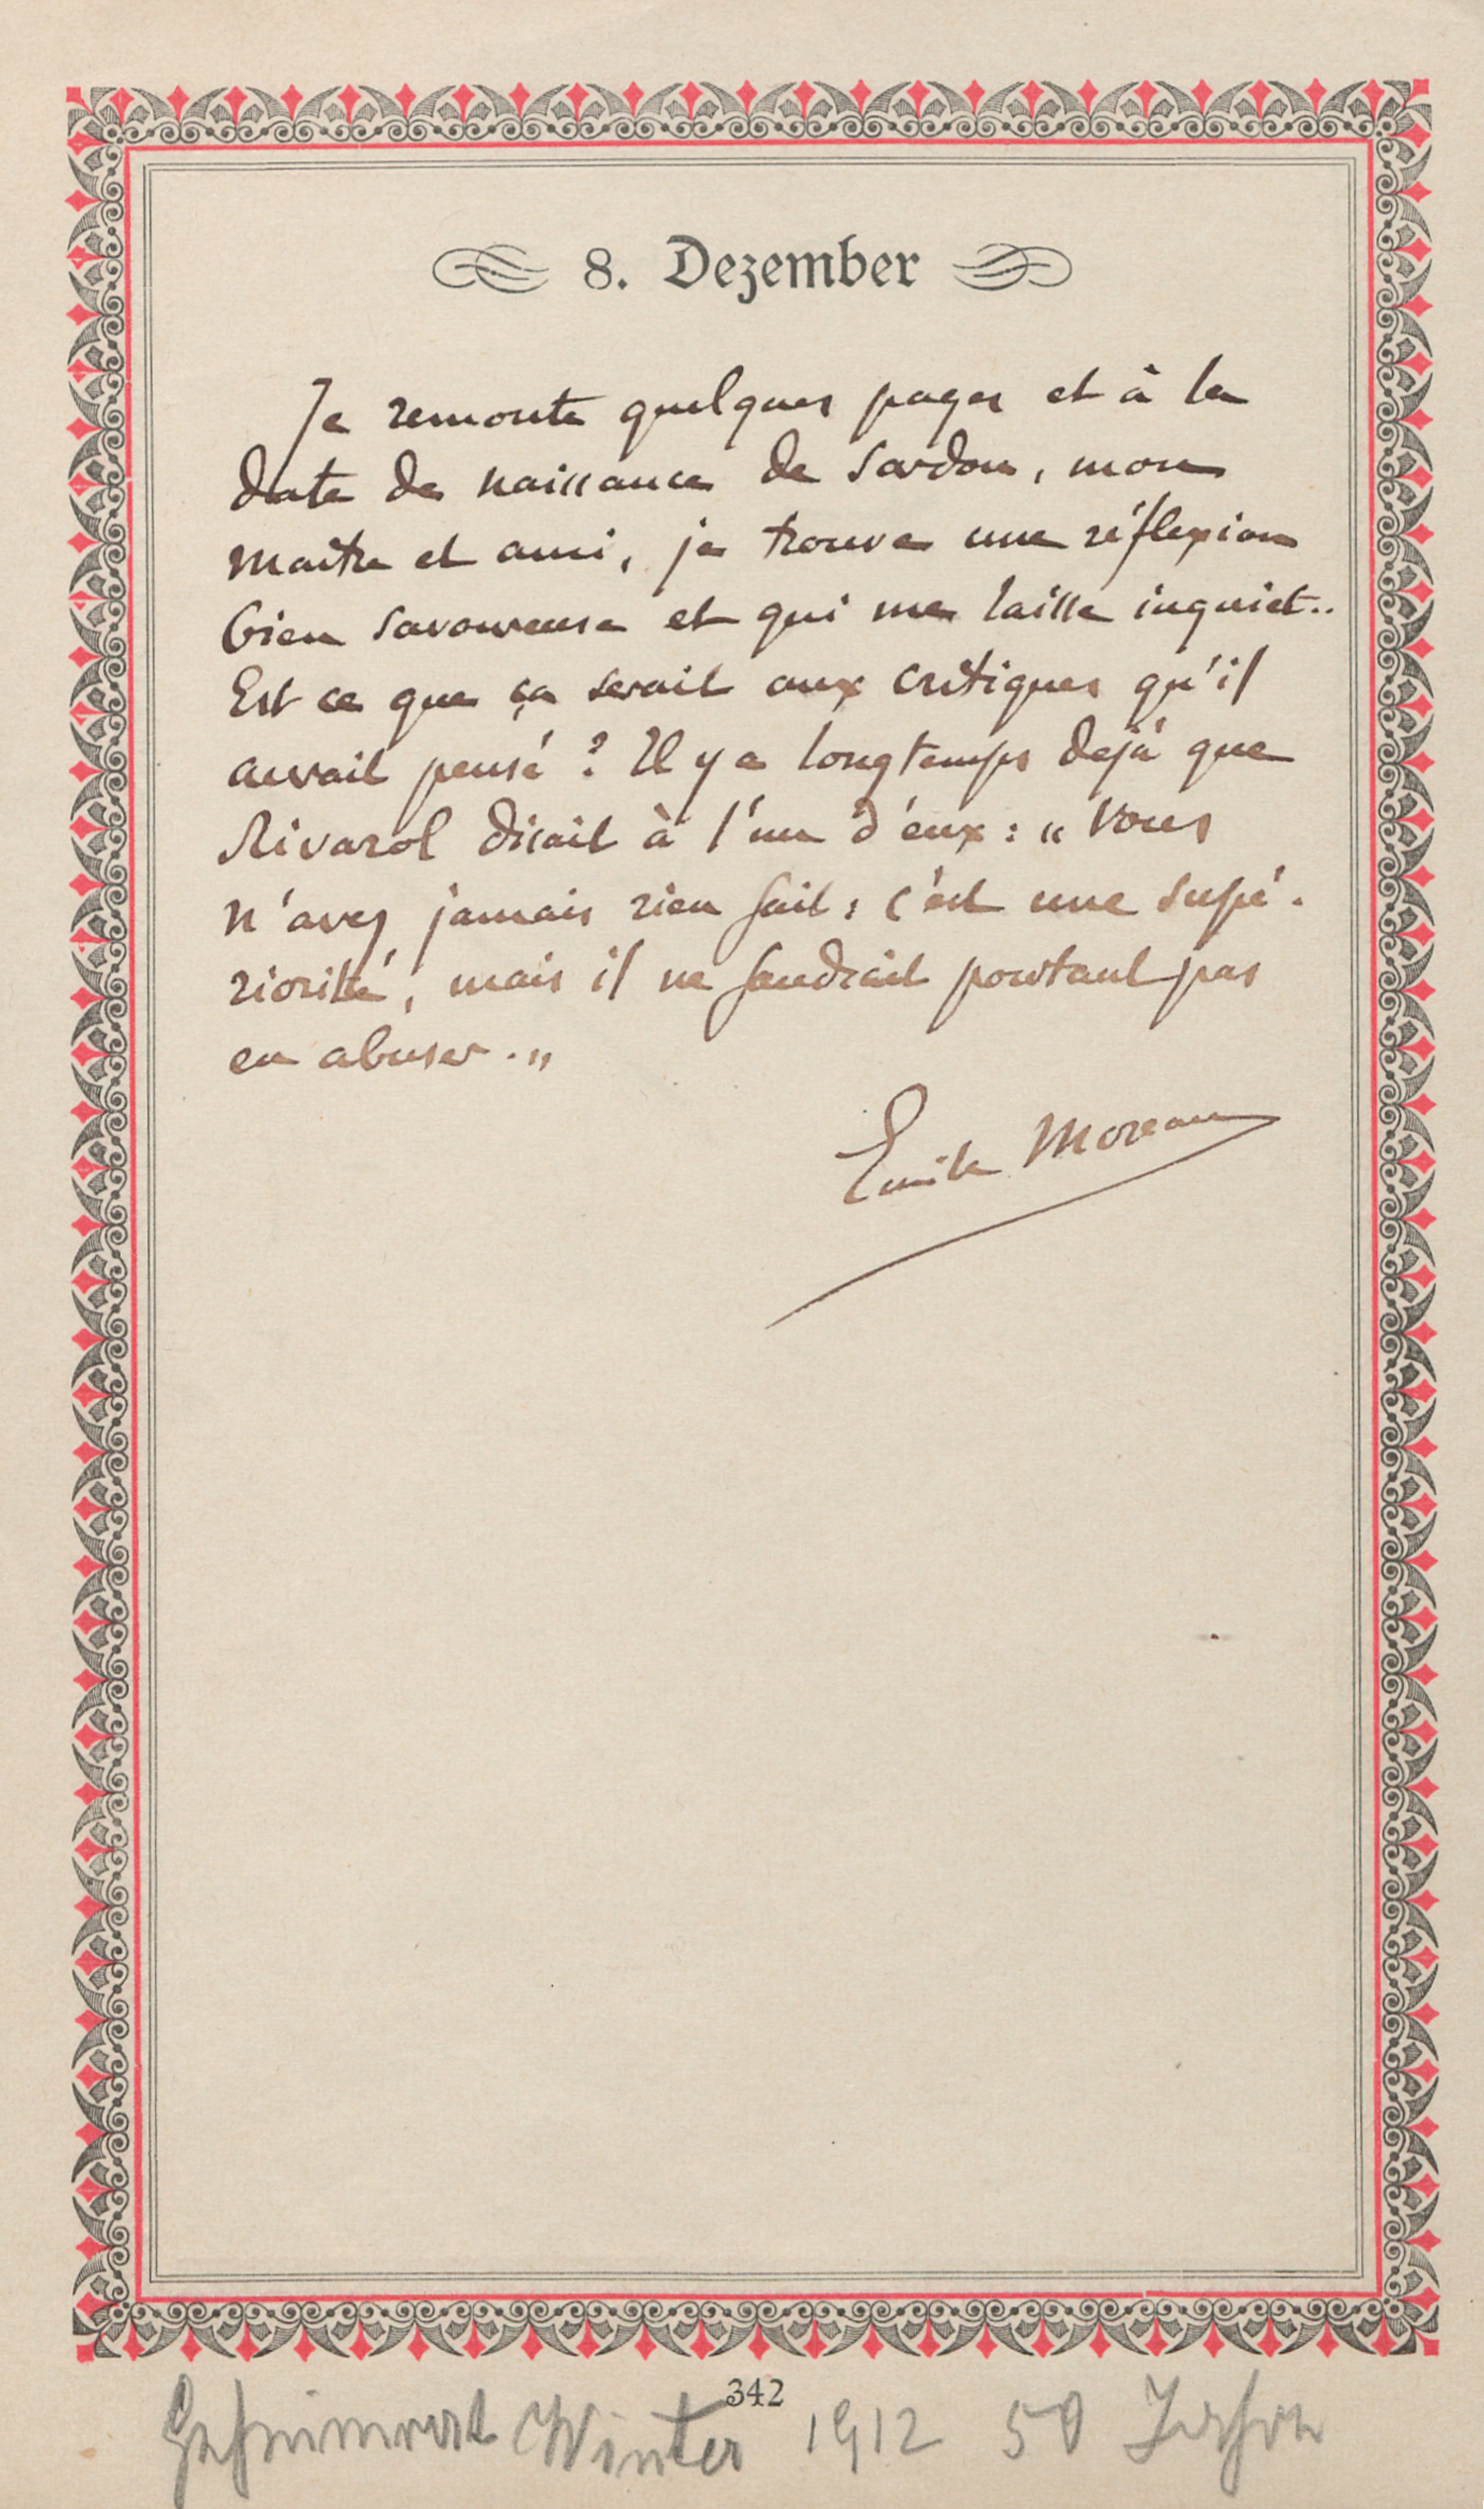 8. Dezember
Je remonte quelques pages et à la
date de naissance de Sardou, mon
maître et ami, je trouve une réflexion
bien savoureuse et qui me laisse inquiet..
Est ce que ça serait aux critiques qu'il
aurait pensé ? Il y a longtemps dejà que
Rivarol disait à l'un d'eux : „ Vous
n'avez jamais rien fait ; c'est une supé-
riorité, mais il ne faudrait pourtant pas
en abuser . „
Emile Moreau
342
Geheimrat Winter 1912 50 Jahre